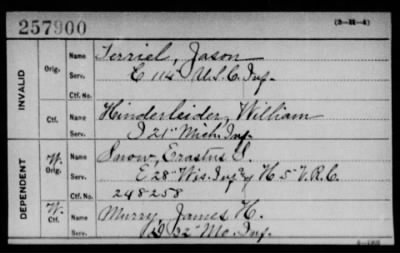 257900
(3—M—4)
INVALID
Orig.
Name Terriel, Jason
Serv. C 114 U.S.C. Inf.
Ctf. No.
Ctf.
Name Hinderleider, William
Serv. I 21" Mich. Inf.
DEPENDENT
W. Orig.
Name Snow, Erastus S.
Serv. E 28" Wis. Inf & H 5" V.R.C.
Ctf. No. 248258
W. Ctf.
Name Murry, James H.
Serv. 32" Mo. Inf.